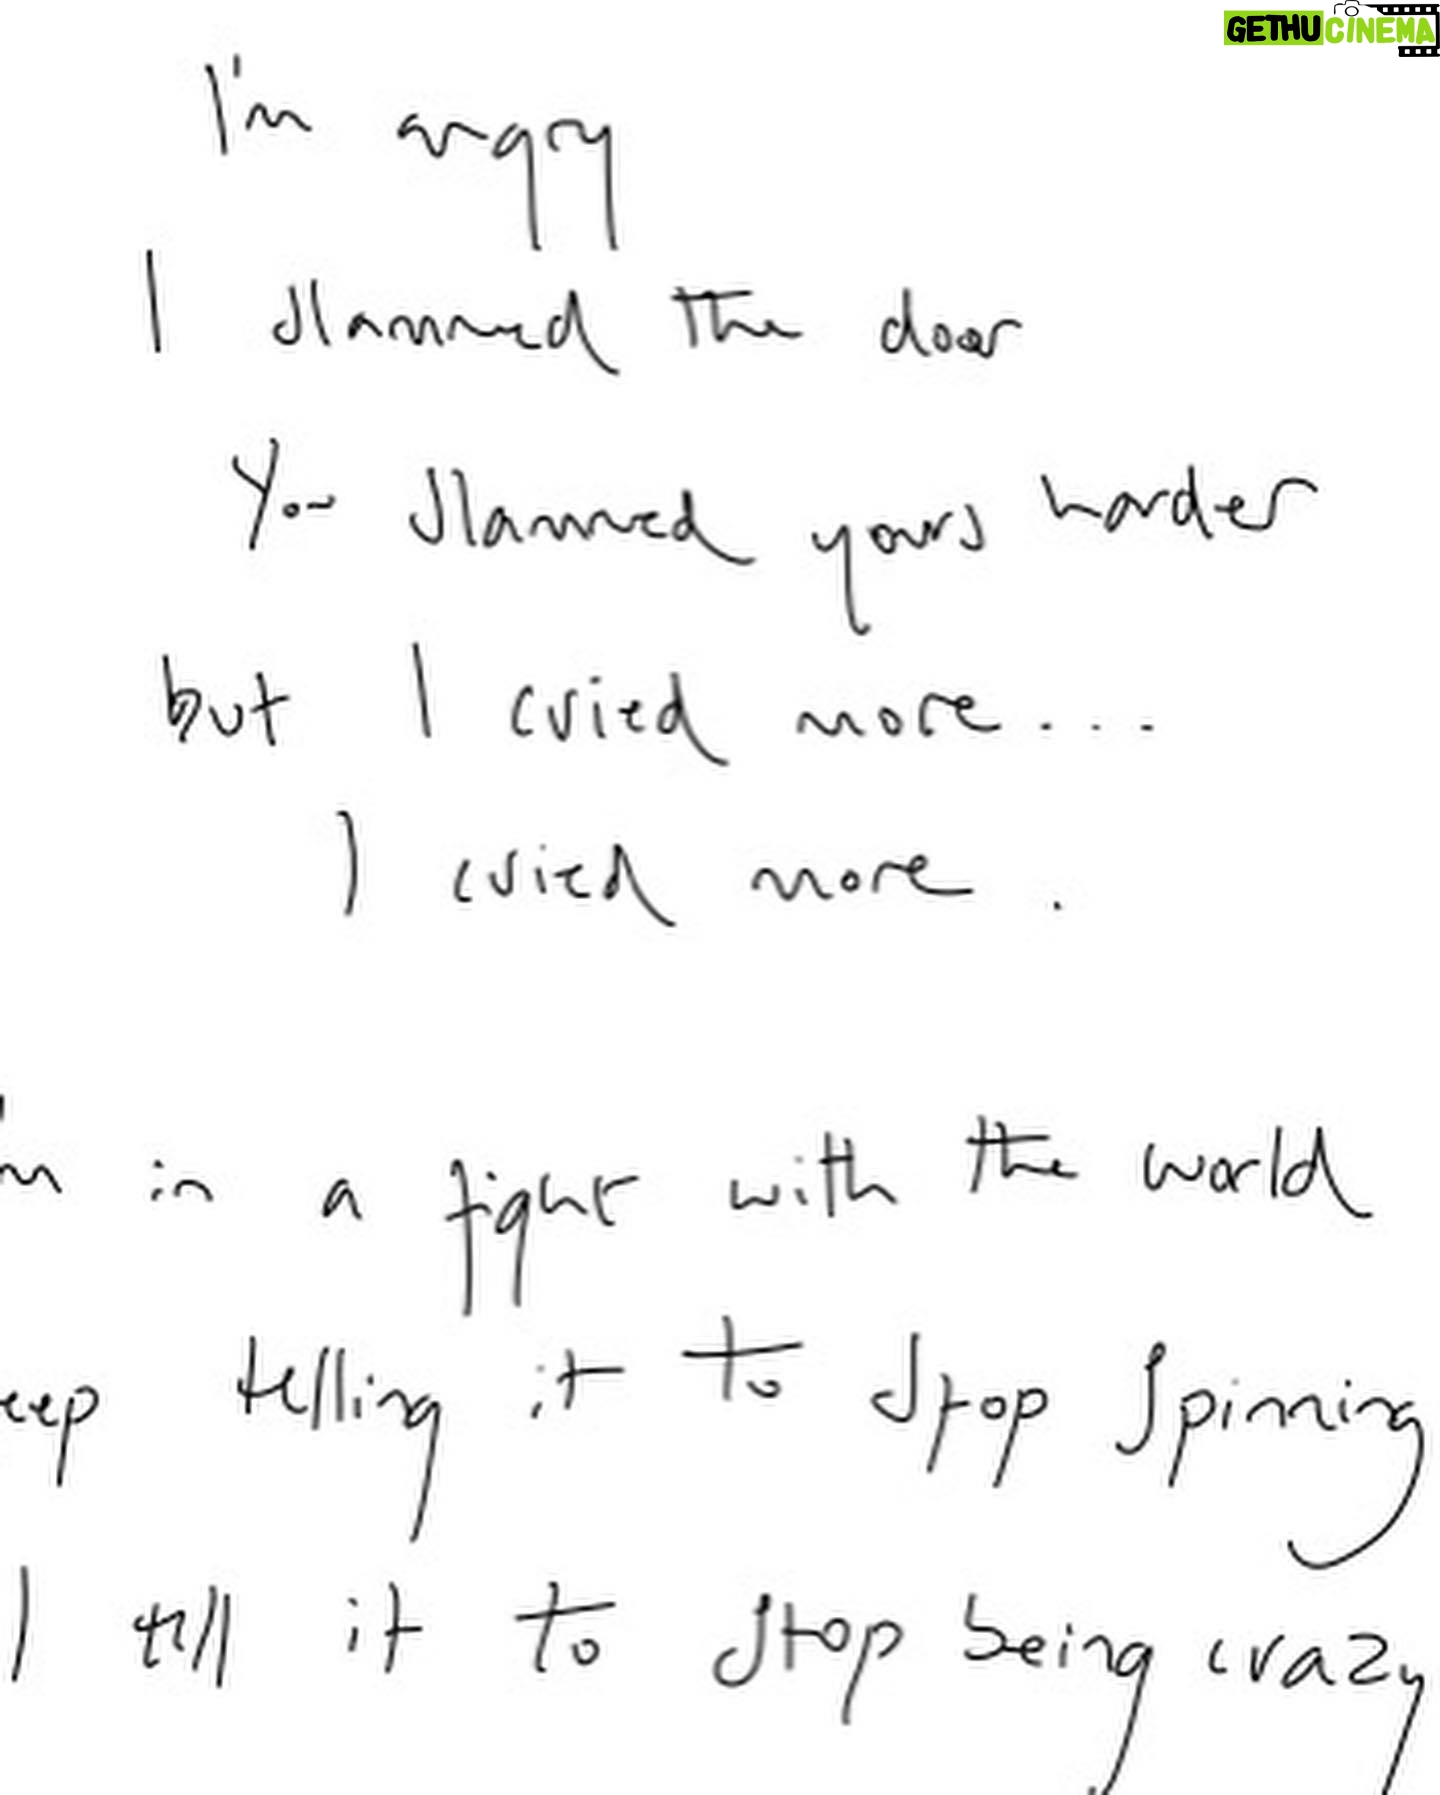 GETHU CINEMA
I'm angry
I slammed the door
You slammed yours harder
but I cried more...
I cried more.
m in a fight with the world
eep telling it to stop spinning
I tell it to stop being crazy